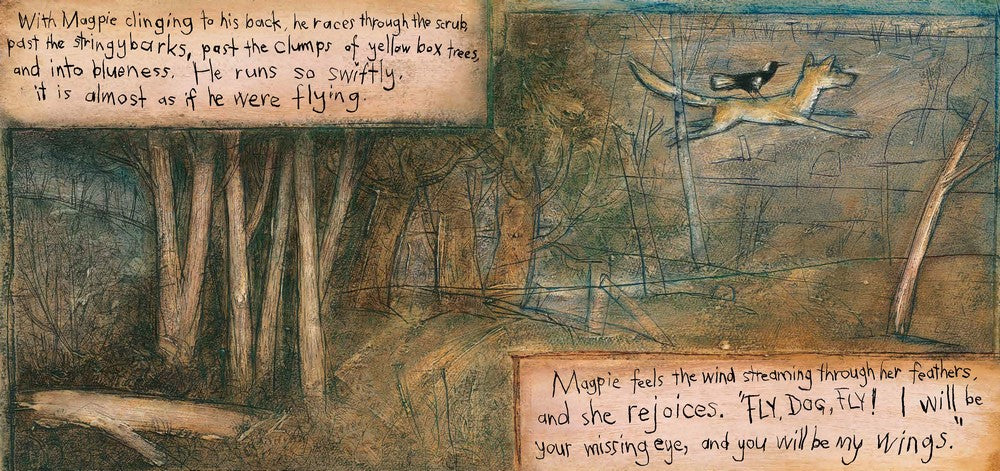 With Magpie clinging to his back, he races through the scrub,
past the stringybarks, past the clumps of yellow box trees,
and into blueness. He runs so swiftly,
it is almost as if he were flying.
Magpie feels the wind streaming through her feathers,
and she rejoices. "FLY, DOG, FLY! I will be
your missing eye, and you will be my wings."